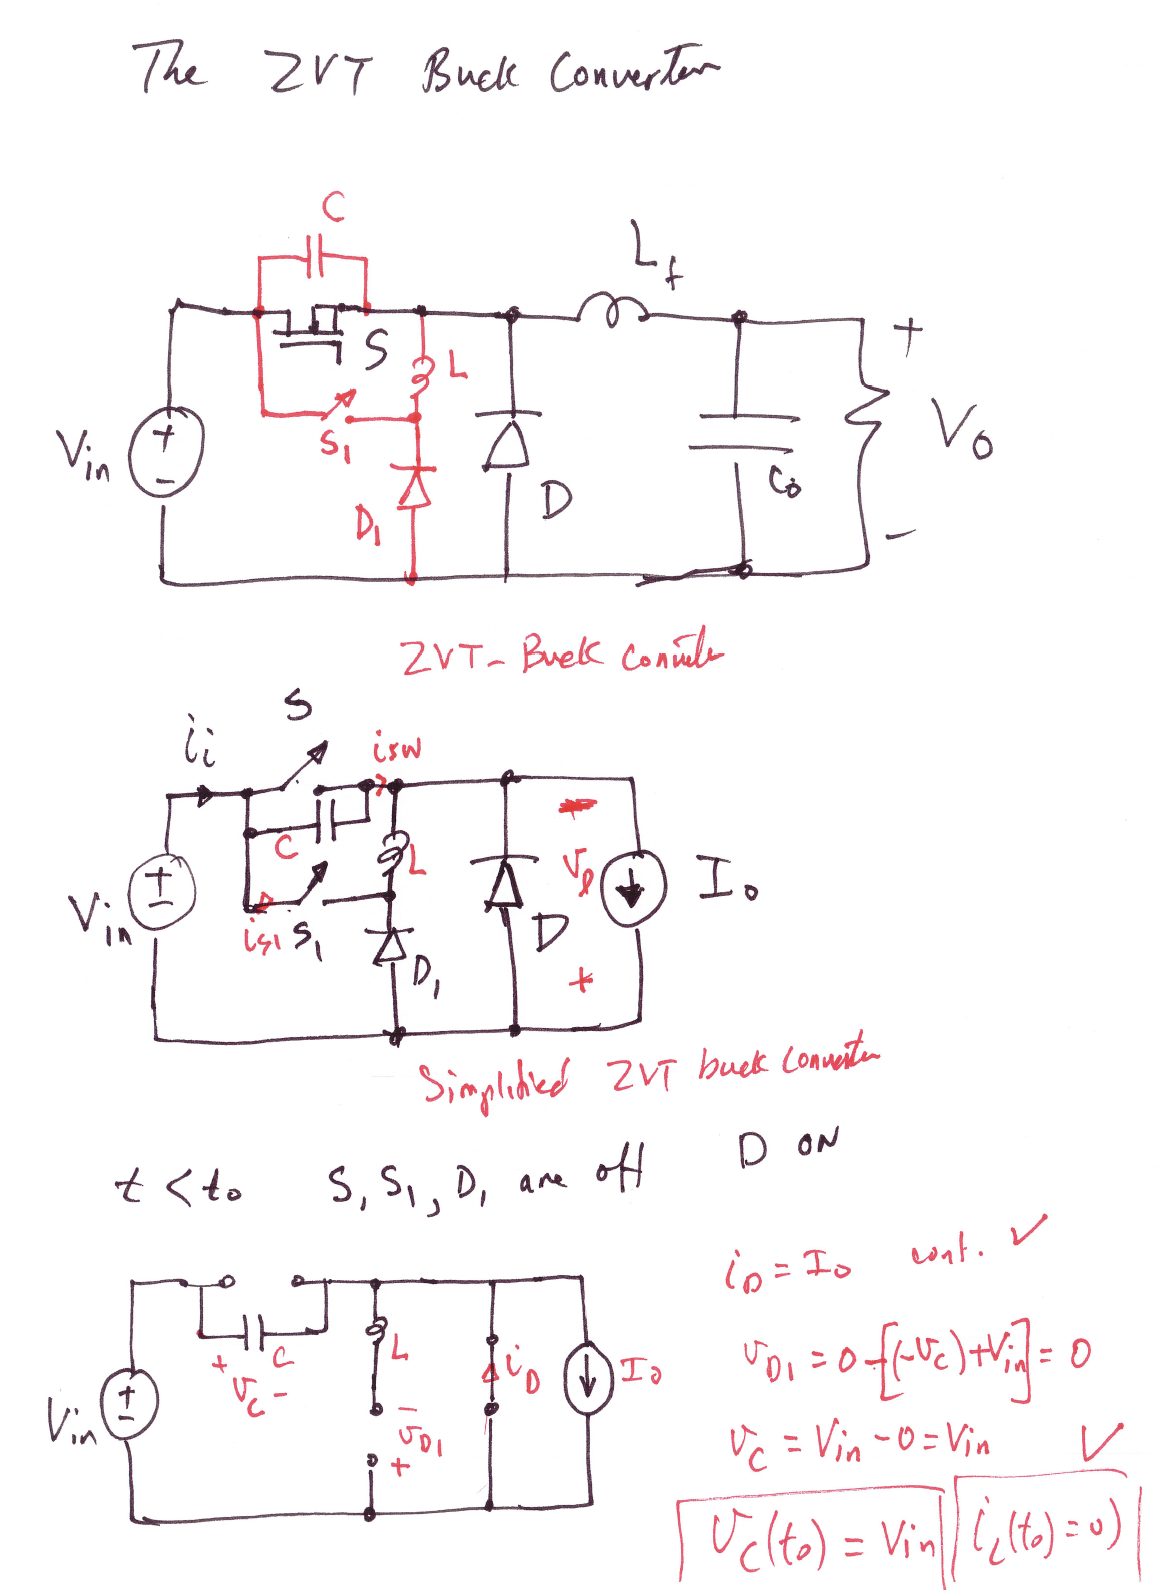 The ZVT Buck Converter
C
L_f
S
L
S_1
V_in
+
-
+
V_o
-
C_o
D
D_1
ZVT-Buck Converter
S
i_i
i_sw
C
L
V_in
+
-
i_s1
S_1
D_1
D
-
v_D
+
I_o
Simplified ZVT buck Converter
t < t_o S, S_1, D_1 are off D ON
i_D = I_o cont. ✓
+ v_C -
C
L
i_D
I_o
V_in
+
-
-
v_D1
+
v_D1 = 0 - [(-v_C) + V_in] = 0
v_C = V_in - 0 = V_in ✓
v_C(t_o) = V_in i_L(t_o) = 0)